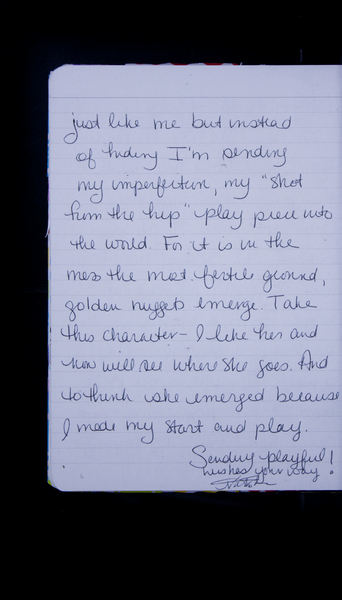 just like me but instead
of hiding I'm sending
my imperfection, my "shot
from the hip" play piece into
the world. For it is in the
mess the most fertile ground,
golden nuggets emerge. Take
this character - I like her and
now will see where she goes. And
to think she emerged because
I made my start and play.
Sending playful
wishes your way!